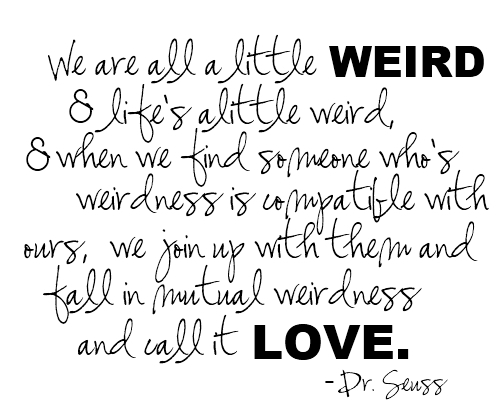 We are all a little WEIRD
& life's alittle weird,
& when we find someone who's
weirdness is compatible with
ours, we join up with them and
fall in mutual weirdness
and call it LOVE.
-Dr. Seuss